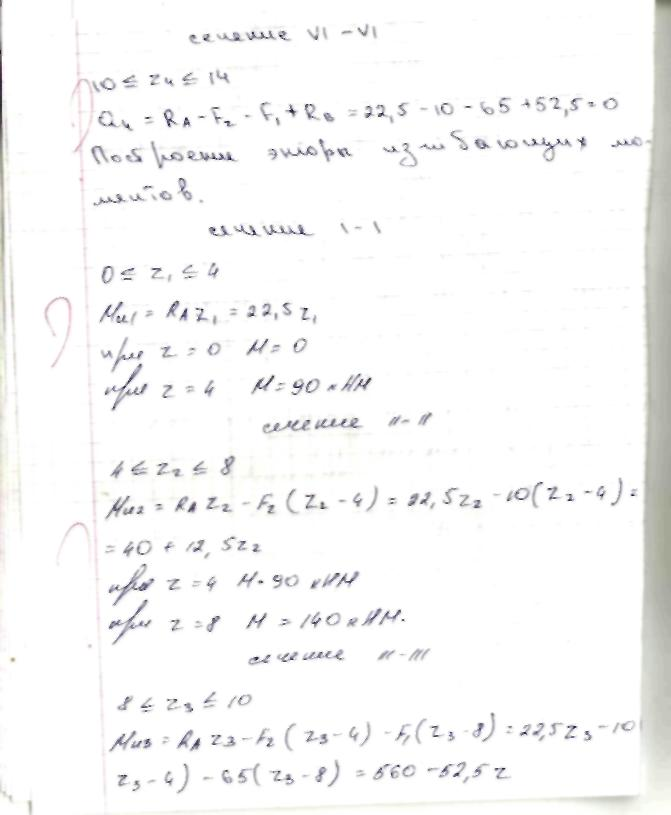 сечение VI - VI
10 ≤ z₄ ≤ 14
Q₄ = RA - F₂ - F₁ + RB = 22,5 - 10 - 65 + 52,5 = 0
Построение эпюры изгибающих мо-
ментов.
сечение I - I
0 ≤ z₁ ≤ 4
Mи₁ = RA z₁ = 22,5 z₁
при z = 0 M = 0
при z = 4 M = 90 кНм
сечение II - II
4 ≤ z₂ ≤ 8
Mи₂ = RA z₂ - F₂ (z₂ - 4) = 22,5z₂ - 10(z₂ - 4) =
= 40 + 12,5z₂
при z = 4 M = 90 кНм
при z = 8 M = 140 кНм.
сечение II - III
8 ≤ z₃ ≤ 10
Mи₃ = RA z₃ - F₂ (z₃ - 4) - F₁ (z₃ - 8) = 22,5z₃ - 10
z₃ - 4) - 65(z₃ - 8) = 560 - 52,5z